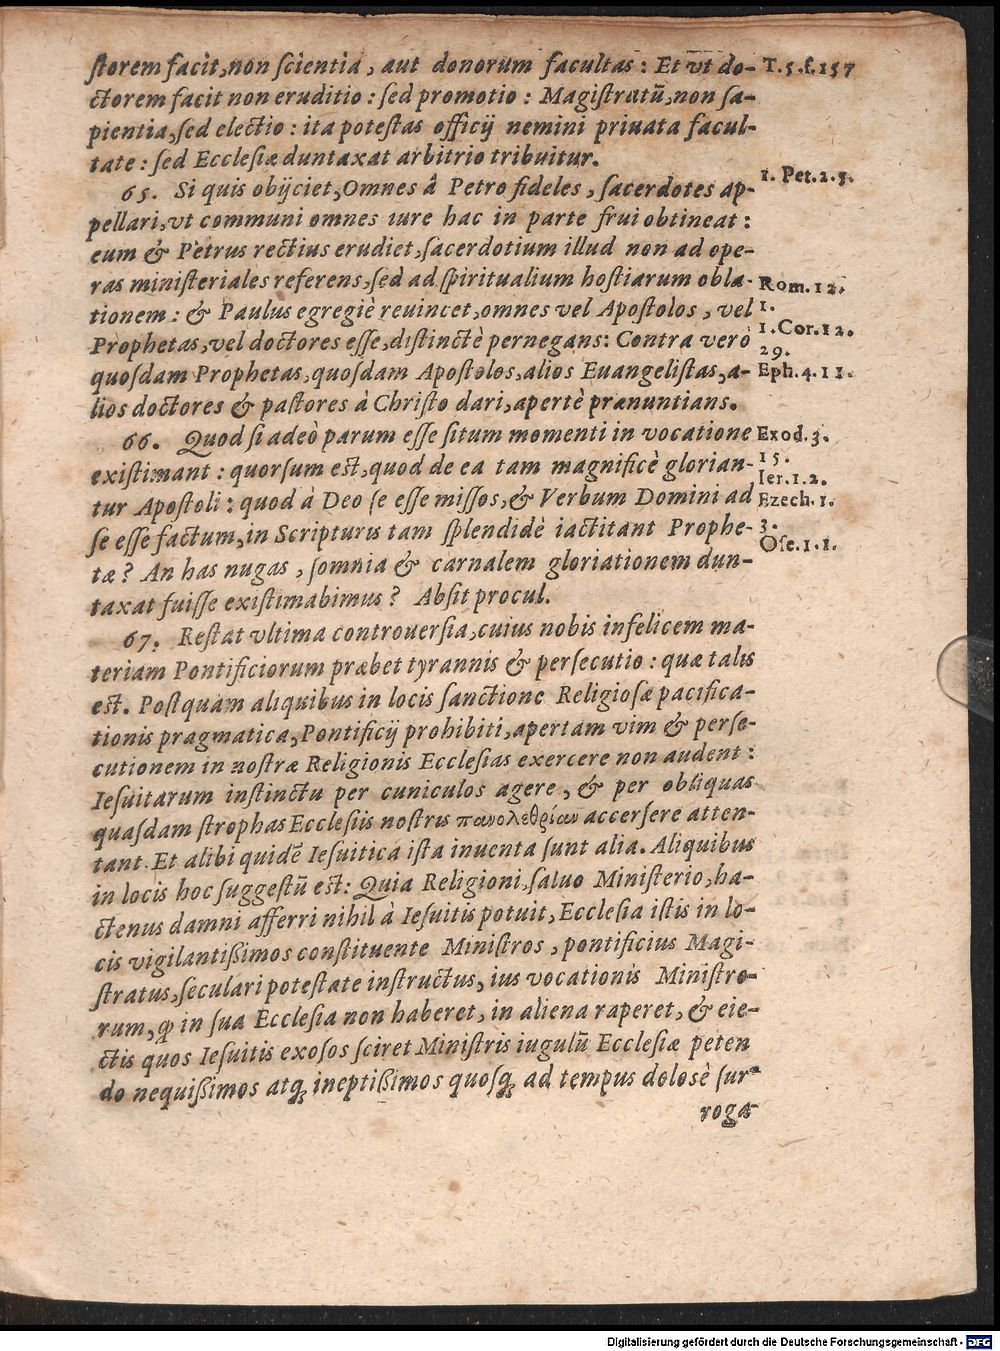 ſtorem facit, non ſcientia, aut donorum facultas: Et vt do- T.5.f.157
ctorem facit non eruditio: ſed promotio: Magiſtratū, non ſa-
pientia, ſed electio: ita poteſtas officij nemini priuata facul-
tate: ſed Eccleſiæ duntaxat arbitrio tribuitur.
65. Si quis obijciet, Omnes â Petro fideles, ſacerdotes ap- 1. Pet. 2. 5.
pellari, vt communi omnes iure hac in parte frui obtineat:
eum & Petrus rectius erudiet, ſacerdotium illud non ad ope-
ras miniſteriales referens, ſed ad ſpiritualium hoſtiarum obla- Rom. 12.
tionem: & Paulus egregiè reuincet, omnes vel Apoſtolos, vel 1.
Prophetas, vel doctores eſſe, diſtinctè pernegans: Contra verò 1. Cor. 12. 29.
quoſdam Prophetas, quoſdam Apoſtolos, alios Euangeliſtas, a- Eph. 4. 11.
lios doctores & paſtores à Chriſto dari, apertè prænuntians.
66. Quod ſi adeò parum eſſe ſitum momenti in vocatione Exod. 3.
exiſtimant: quorſum eſt, quod de ea tam magnificè glorian- 15.
tur Apoſtoli: quod à Deo ſe eſſe miſſos, & Verbum Domini ad Ier. 1. 2. Ezech. 1.
ſe eſſe factum, in Scripturis tam ſplendidè iactitant Prophe- 3.
tæ? An has nugas, ſomnia & carnalem gloriationem dun- Oſe. 1. 1.
taxat fuiſſe exiſtimabimus? Abſit procul.
67. Reſtat vltima controuerſia, cuius nobis infelicem ma-
teriam Pontificiorum præbet tyrannis & perſecutio: quæ talis
eſt. Poſtquam aliquibus in locis ſanctione Religioſæ pacifica-
tionis pragmatica, Pontificij prohibiti, apertam vim & perſe-
cutionem in noſtræ Religionis Eccleſias exercere non audent:
Ieſuitarum inſtinctu per cuniculos agere, & per obliquas
quaſdam ſtrophas Eccleſiis noſtris πανολεθρίαν accerſere atten-
tant. Et alibi quidē Ieſuitica iſta inuenta ſunt alia. Aliquibus
in locis hoc ſuggeſtū eſt: Quia Religioni, ſaluo Miniſterio, ha-
ctenus damni afferri nihil à Ieſuitis potuit, Eccleſia iſtis in lo-
cis vigilantißimos conſtituente Miniſtros, pontificius Magi-
ſtratus, ſeculari poteſtate inſtructus, ius vocationis Miniſtro-
rum, ꝙ in ſua Eccleſia non haberet, in aliena raperet, & eie-
ctis quos Ieſuitis exoſos ſciret Miniſtris iugulū Eccleſiæ peten
do nequißimos atq́; ineptißimos quoſq́; ad tempus doloſè ſur-
roga
Digitalisierung gefördert durch die Deutsche Forschungsgemeinschaft - DFG